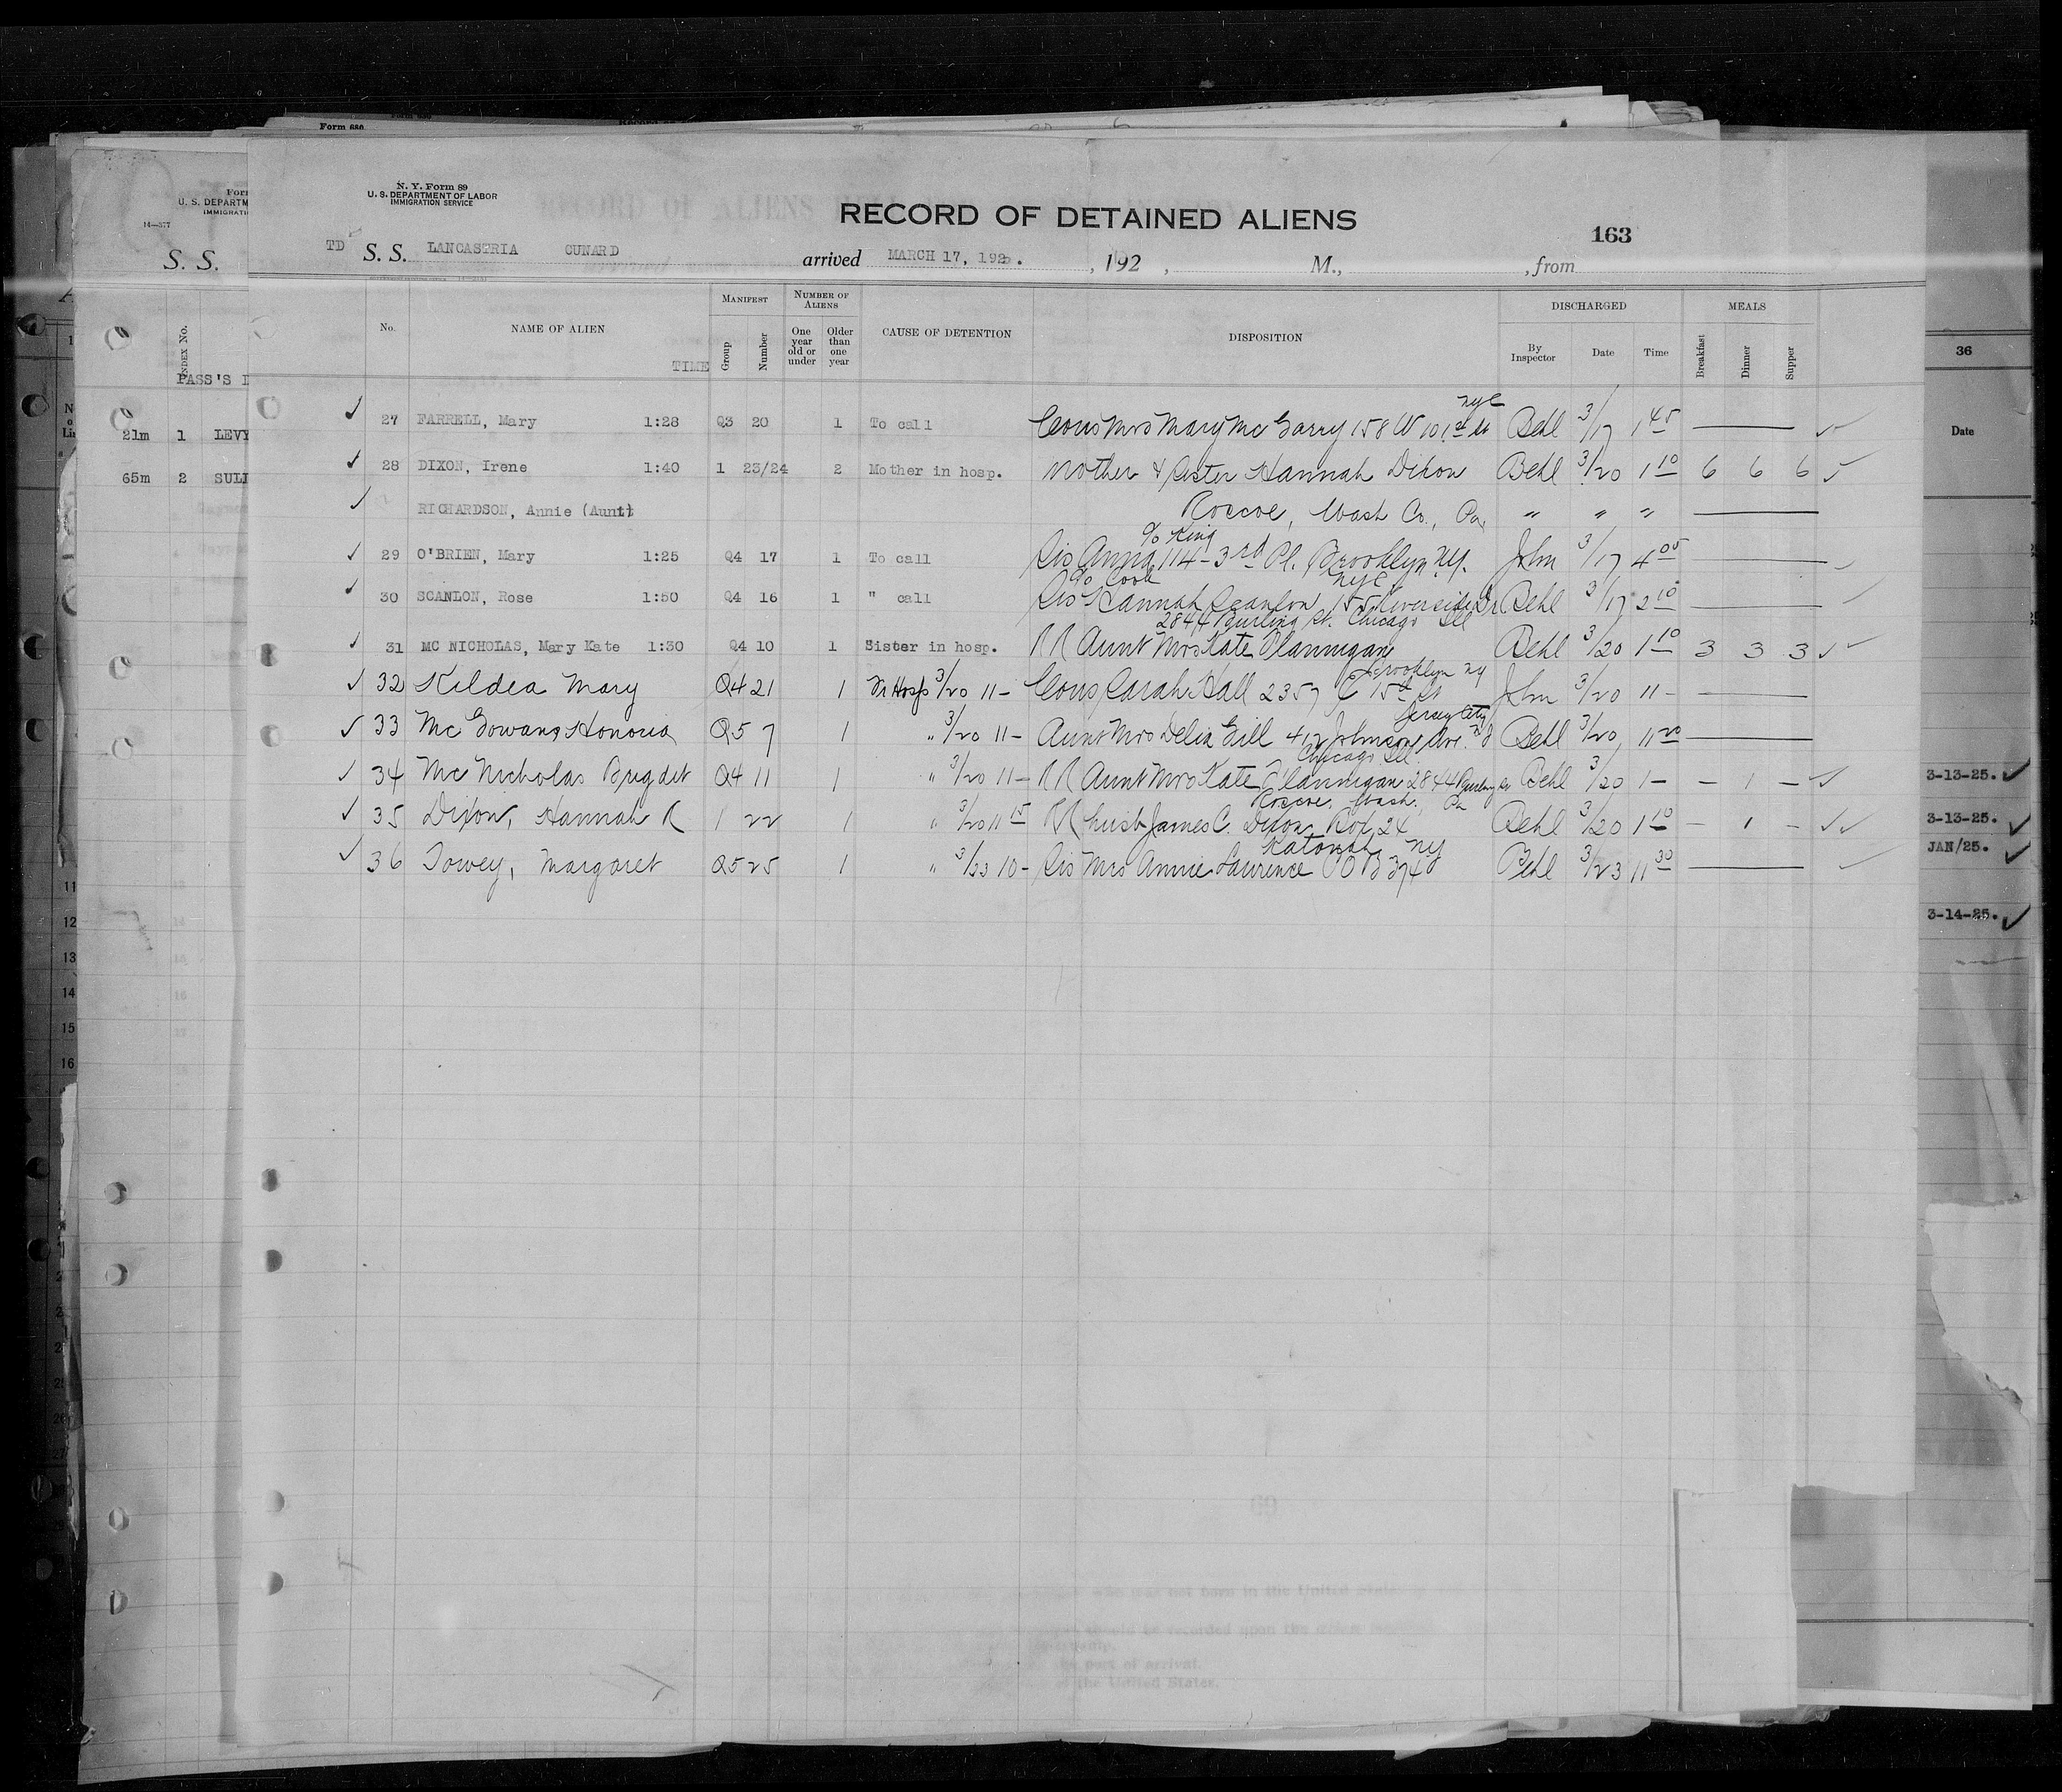 Form 880
N. Y. Form 89
U. S. DEPARTMENT OF LABOR
IMMIGRATION SERVICE
RECORD OF DETAINED ALIENS
163
TD S. S. LANCASTRIA CUNARD arrived MARCH 17, 192 . , 192 , M., , from
No. NAME OF ALIEN TIME MANIFEST Group Number NUMBER OF ALIENS One year old or under Older than one year CAUSE OF DETENTION DISPOSITION DISCHARGED By Inspector Date Time MEALS Breakfast Dinner Supper
✓ 27 FARRELL, Mary 1:28 Q3 20 1 To call Cous Mrs Mary McGarry 158 W 101st St NYC Behl 3/17 1 45 — ✓
✓ 28 DIXON, Irene 1:40 1 23/24 2 Mother in hosp. Mother & Sister Hannah Dixon Behl 3/20 1 10 6 6 6 ✓
✓ RICHARDSON, Annie (Aunt) Roscoe, Wash Co., Pa. " " " —
✓ 29 O'BRIEN, Mary 1:25 Q4 17 1 To call Sis Anna % King 114 - 3rd Pl. Brooklyn NY. John 3/17 4 05 — ✓
✓ 30 SCANLON, Rose 1:50 Q4 16 1 " call Sis Hannah Scanlon % Cook 155 Riverside Dr NYC Behl 3/17 2 10 — ✓
✓ 31 MC NICHOLAS, Mary Kate 1:30 Q4 10 1 Sister in hosp. RR Aunt Mrs Kate Flannigan 2844 Burling St. Chicago Ill Behl 3/20 1 10 3 3 3 ✓✓
✓ 32 Kildea Mary Q4 21 1 In Hosp 3/20 11 - Cous Sarah Hall 2357 E 15th St Brooklyn NY John 3/20 11 - —
✓ 33 McGowan, Honoria Q5 7 1 " 3/20 11 - Aunt Mrs Delia Gill 412 Johnson Ave. Jersey City NJ Behl 3/20 11 20 —
✓ 34 McNicholas Brigdet Q4 11 1 " 3/20 11 - RR Aunt Mrs Kate Flannigan 2844 Burling St Chicago Ill. Behl 3/20 1 - - 1 - ✓
✓ 35 Dixon, Hannah R 1 22 1 " 3/20 11 15 RR husb James C. Dixon Box 24 Roscoe, Wash. Pa Behl 3/20 1 10 - 1 - ✓✓
✓ 36 Towey, Margaret Q5 25 1 " 3/23 10 - Sis Mrs Annie Lawrence POB 374 Katonah NY Behl 3/23 11 30 — ✓
14-377
U. S. DEPARTM
IMMIGRATI
S. S.
INDEX No.
PASS'S
21m 1 LEVY
65m 2 SULL
11
12
13
14
15
16
36
Date
3-13-25. ✓
3-13-25. ✓
JAN/25. ✓
3-14-25. ✓